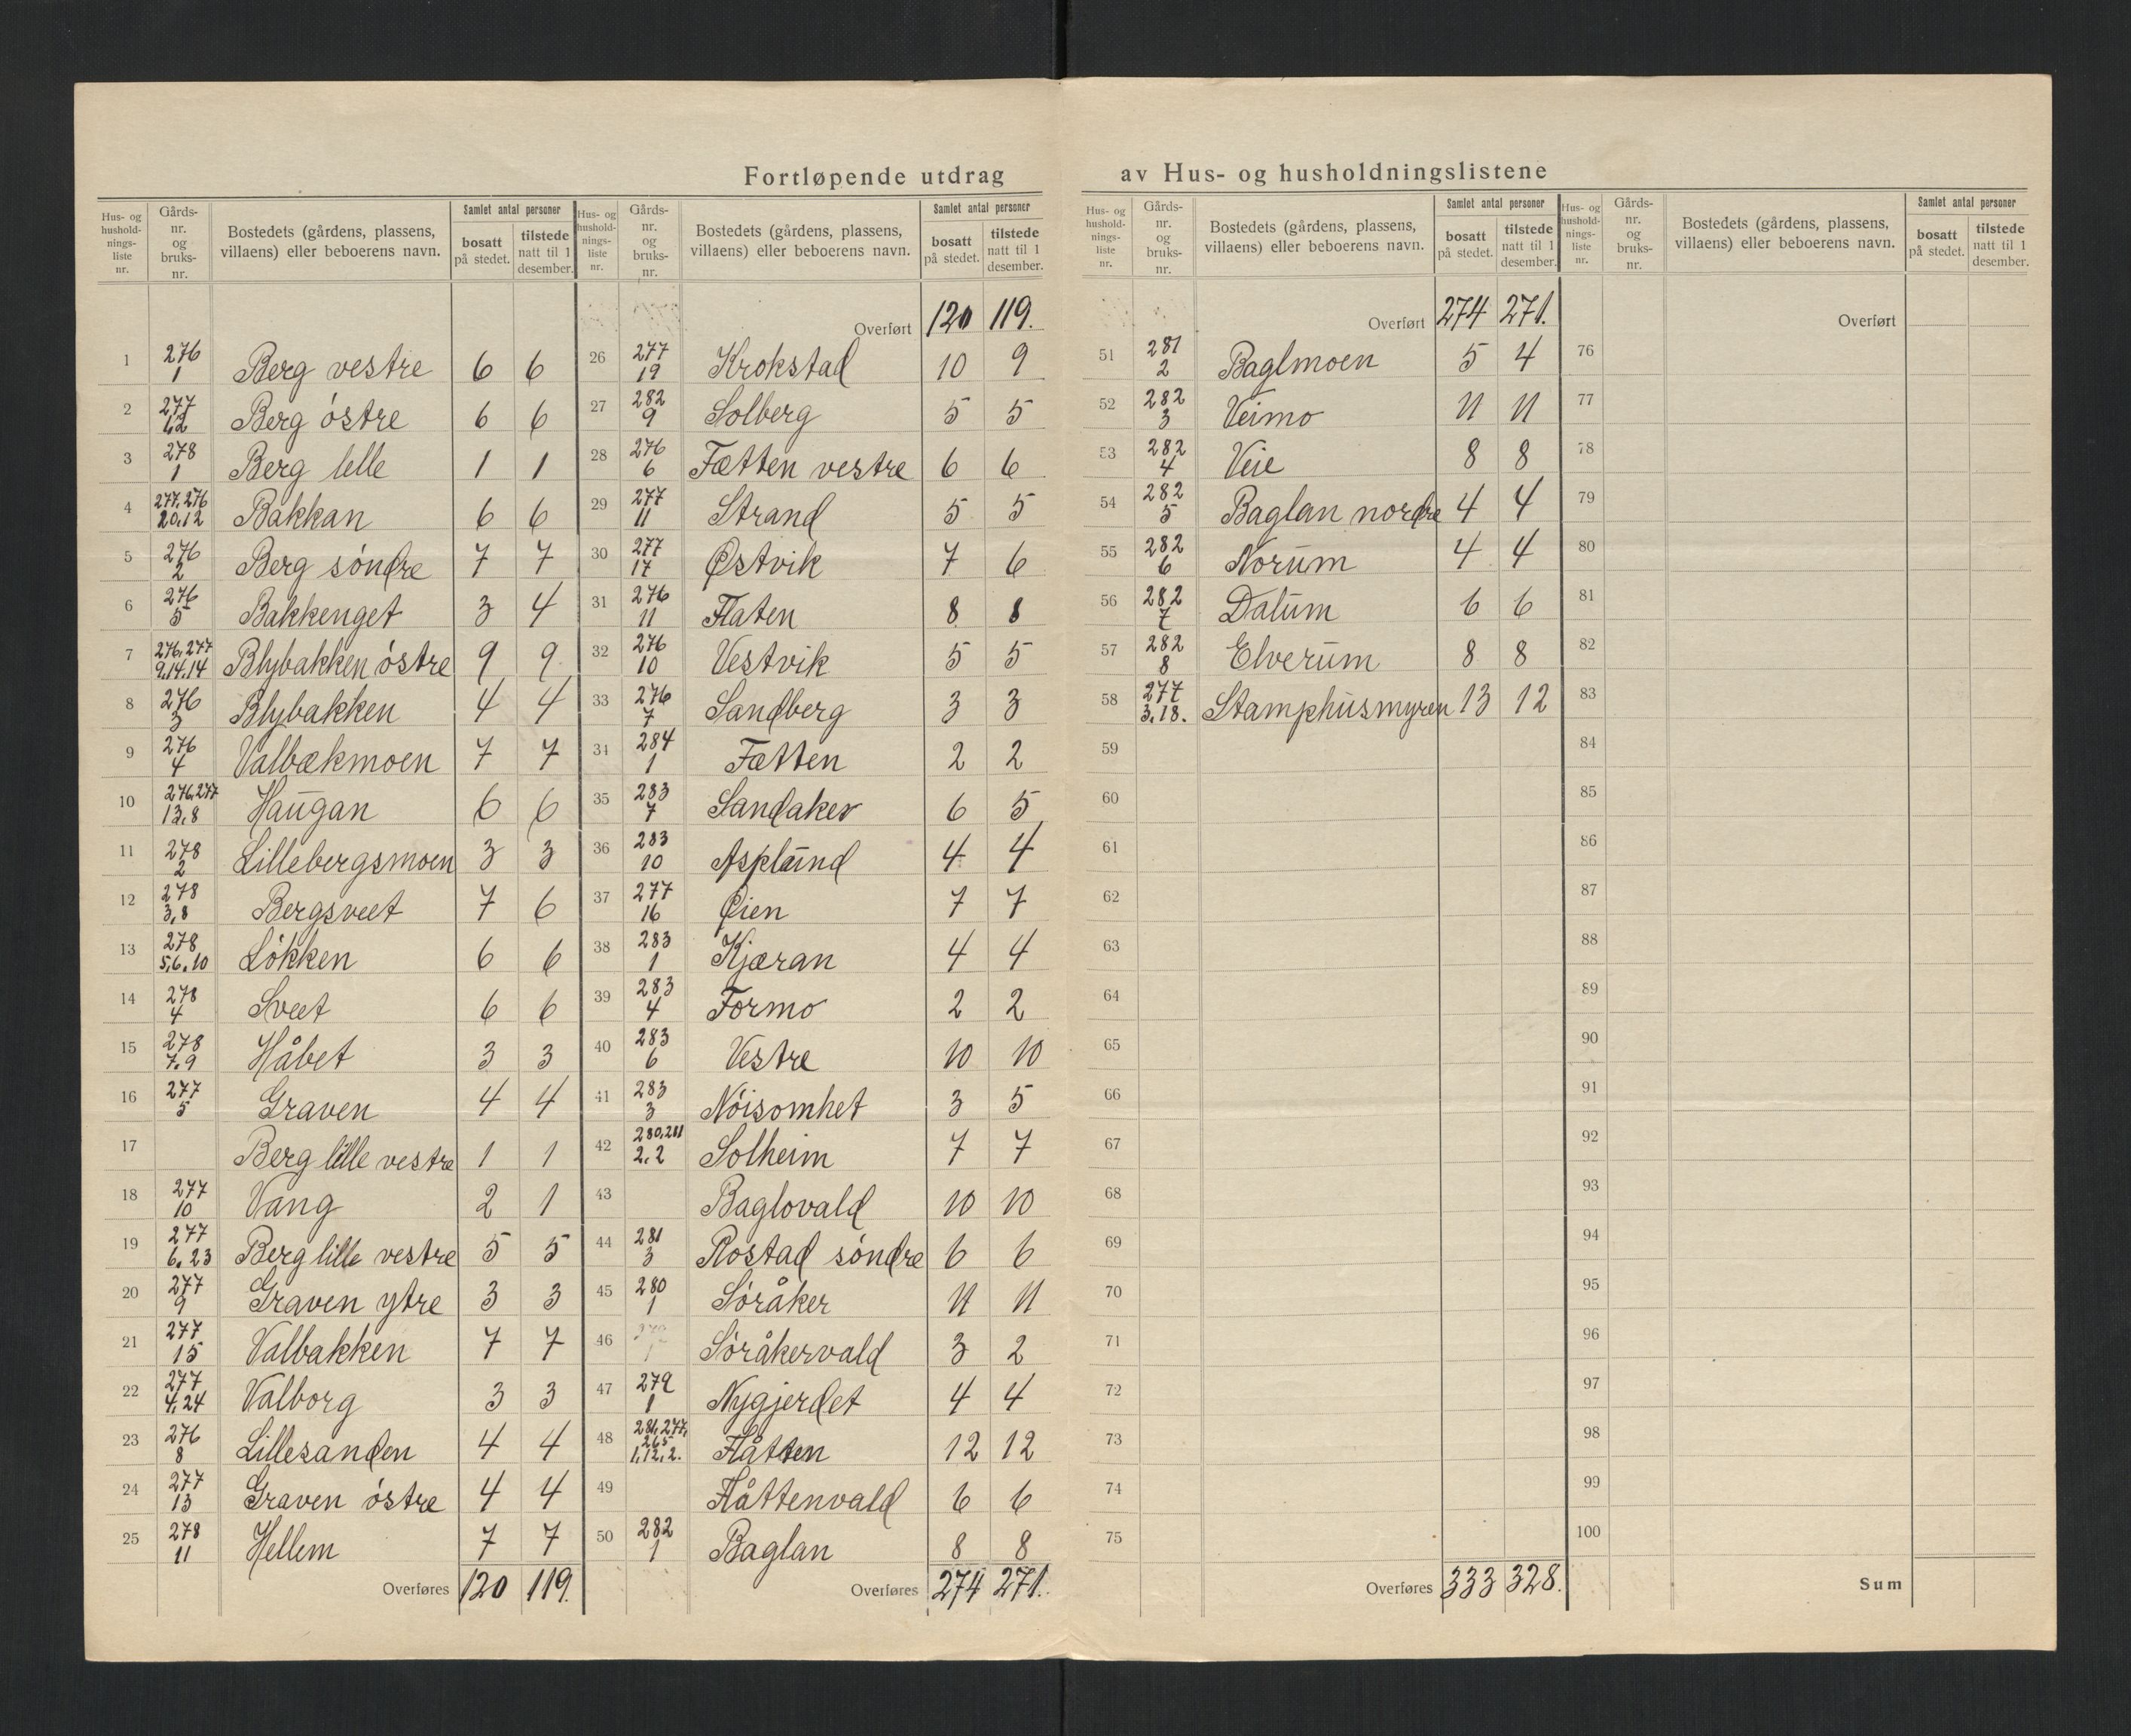 Fortløpende utdrag av Hus- og husholdningslistene
Hus- og hushold-nings-liste nr. | Gårds-nr. og bruks-nr. | Bostedets (gårdens, plassens, villaens) eller beboerens navn. | Samlet antal personer | bosatt på stedet. | tilstede natt til 1 desember.
1 276 1 Berg vestre 6 6
2 277 1,2 Berg östre 6 6
3 278 1 Berg lille 1 1
4 277,276 20,12 Bakkan 6 6
5 276 2 Berg söndre 7 7
6 276 5 Bakkenget 3 4
7 276,277 9,14,14 Blybakken östre 9 9
8 276 3 Blybakken 4 4
9 276 4 Valbækmoen 7 7
10 276,277 13,8 Haugan 6 6
11 278 2 Lillebergsmoen 3 3
12 278 3,8 Bergsveet 7 6
13 278 5,6,10 Lökken 6 6
14 278 4 Sveet 6 6
15 278 7,9 Håbet 3 3
16 277 5 Graven 4 4
17 Berg lille vestre 1 1
18 277 10 Vang 2 1
19 277 6,23 Berg lille vestre 5 5
20 277 9 Graven ytre 3 3
21 277 15 Valbakken 7 7
22 277 4,24 Valborg 3 3
23 276 8 Lillesanden 4 4
24 277 13 Graven östre 4 4
25 278 11 Hellem 7 7
Overføres 120 119.
Hus- og hushold-nings-liste nr. | Gårds-nr. og bruks-nr. | Bostedets (gårdens, plassens, villaens) eller beboerens navn. | Samlet antal personer | bosatt på stedet. | tilstede natt til 1 desember.
Overført 120 119.
26 277 19 Krokstad 10 9
27 282 9 Solberg 5 5
28 276 6 Fætten vestre 6 6
29 277 11 Strand 5 5
30 277 17 Østvik 7 6
31 276 11 Flaten 8 8
32 276 10 Vestvik 5 5
33 276 7 Sandberg 3 3
34 284 1 Fætten 2 2
35 283 7 Sandaker 6 5
36 283 10 Asplund 4 4
37 277 16 Øien 7 7
38 283 1 Kjæran 4 4
39 283 4 Formo 2 2
40 283 6 Vestre 10 10
41 283 3 Nöisomhet 3 5
42 280,281 2,2 Solheim 7 7
43 Baglovald 10 10
44 281 3 Rostad söndre 6 6
45 280 1 Söråker 11 11
46 Söråkervald 3 2
47 279 1 Nygjerdet 4 4
48 281,277, 265 1,12,2. Flåtten 12 12
49 Flåttenvald 6 6
50 282 1 Baglan 8 8
Overføres 274 271.
Hus- og hushold-nings-liste nr. | Gårds-nr. og bruks-nr. | Bostedets (gårdens, plassens, villaens) eller beboerens navn. | Samlet antal personer | bosatt på stedet. | tilstede natt til 1 desember.
Overført 274 271.
51 281 2 Baglmoen 5 4
52 282 3 Veimo 11 11
53 282 4 Veie 8 8
54 282 5 Baglan nordre 4 4
55 282 6 Norum 4 4
56 282 7 Dalum 6 6
57 282 8 Elverum 8 8
58 277 3,18. Stamphusmyren 13 12
59
60
61
62
63
64
65
66
67
68
69
70
71
72
73
74
75
Overføres 333 328.
Hus- og hushold-nings-liste nr. | Gårds-nr. og bruks-nr. | Bostedets (gårdens, plassens, villaens) eller beboerens navn. | Samlet antal personer | bosatt på stedet. | tilstede natt til 1 desember.
Overført
76
77
78
79
80
81
82
83
84
85
86
87
88
89
90
91
92
93
94
95
96
97
98
99
100
Sum